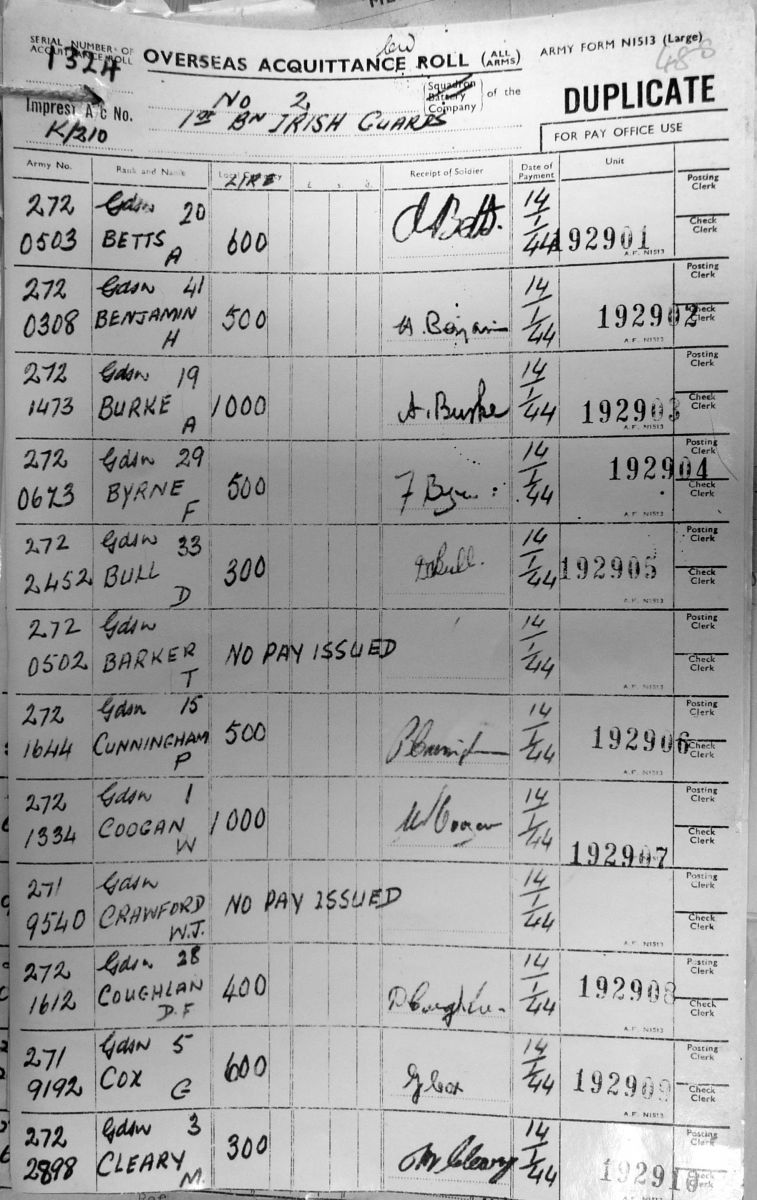 SERIAL NUMBER OF ACQUITTANCE ROLL
1324
OVERSEAS ACQUITTANCE ROLL (ALL ARMS)
ARMY FORM N1513 (Large)
488
Imprest A/C No.
K/210
No 2
Squadron Battery Company of the
1st BN IRISH GUARDS
DUPLICATE
FOR PAY OFFICE USE
Army No. Rank and Name Local Currency LIRE £ s. d. Receipt of Soldier Date of Payment Unit Posting Clerk
272 Gdsn 20 14
0503 BETTS A 600 A Betts. 1/44 192901 Check Clerk
A.F. N1513
Posting Clerk
272 Gdsn 41 14
0308 BENJAMIN H 500 H. Benjamin 1/44 192902 Check Clerk
A.F. N1513
Posting Clerk
272 Gdsn 19 14
1473 BURKE A 1000 A. Burke 1/44 192903 Check Clerk
A.F. N1513
Posting Clerk
272 Gdsn 29 14 192904
0673 BYRNE F 500 F Byrne 1/44 Check Clerk
A.F. N1513
Posting Clerk
272 Gdsn 33 14
2452 BULL D 300 D Bull. 1/44 192905 Check Clerk
A.F. N1513
Posting Clerk
272 Gdsn 14
0502 BARKER T NO PAY ISSUED 1/44 Check Clerk
A.F. N1513
Posting Clerk
272 Gdsn 15 14
1644 CUNNINGHAM P 500 P Cunningham 1/44 192906 Check Clerk
A.F. N1513
Posting Clerk
272 Gdsn 1 14
1334 COOGAN W 1000 W Coogan 1/44 192907 Check Clerk
Posting Clerk
271 Gdsn 14
9540 CRAWFORD W.J. NO PAY ISSUED 1/44 Check Clerk
A.F. N1513
Posting Clerk
272 Gdsn 28 14
1612 COUGHLAN D.F 400 D Coughlan 1/44 192908 Check Clerk
A.F. N1513
Posting Clerk
271 Gdsn 5 14
9192 COX G 600 G Cox 1/44 192909 Check Clerk
A.F. N1513
Posting Clerk
272 Gdsn 3 14
2898 CLEARY M. 300 M Cleary 1/44 192910 Check Clerk